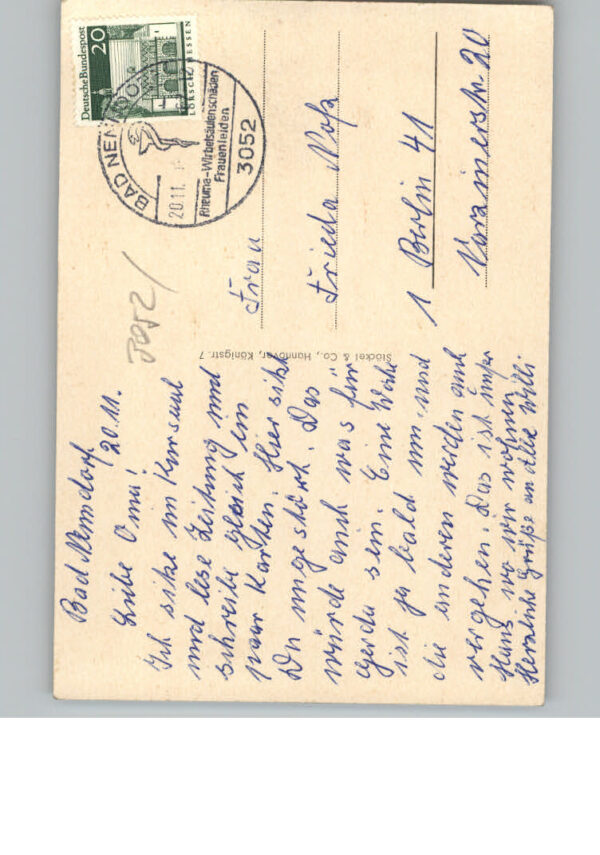 Bad Nenndorf
20.11.
Liebe Omi!
Ich sitze im Kursaal
und lese Zeitung und
schreibe gleich ein
paar Karten. Hier sitzt
Du ungestört. Das
würde auch was für
Gerda sein. Eine Woche
ist ja bald um und
die anderen werden auch
vergehen. Das ist unser
Haus wo wir wohnen,
Herzliche Grüße an alle Willi
3052/
Stöckel & Co., Hannover, Königstr. 7
Deutsche Bundespost
20
LORSCH HESSEN
BAD NENNDORF
20.11.
Rheuma-Wirbelsäulenschäden
Frauenleiden
3052
Frau
Frieda
1 Berlin 41
20